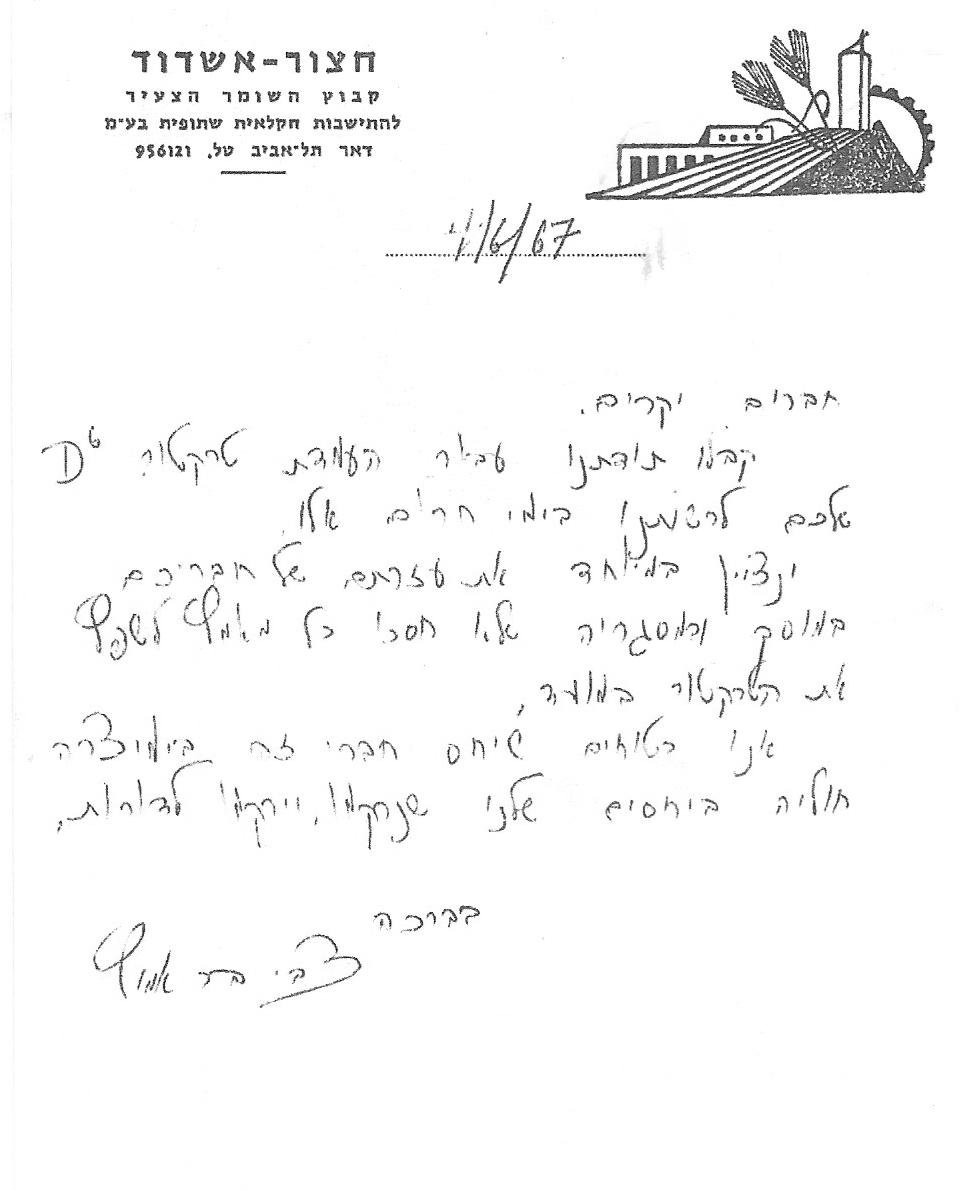 חצור-אשדוד
קבוץ השומר הצעיר
להתישבות חקלאית שתופית בע״מ
דאר תל-אביב טל. 956121
1/6/67
חברים יקרים.
קבלו תודתנו עבור העמדת טרקטור D6
שלכם לרשותנו בימי חרום אלו.
ונציין במיוחד את עזרתם של חבריכם
במוסך ובמסגריה שלא חסכו כל מאמץ לשפץ
את הטרקטור במועד,
אנו בטוחים שיחס חברי זה
חוליה ביחסים שלנו שנרקמו, וירקמו לדורות.
בברכה
צבי בר אמוץ